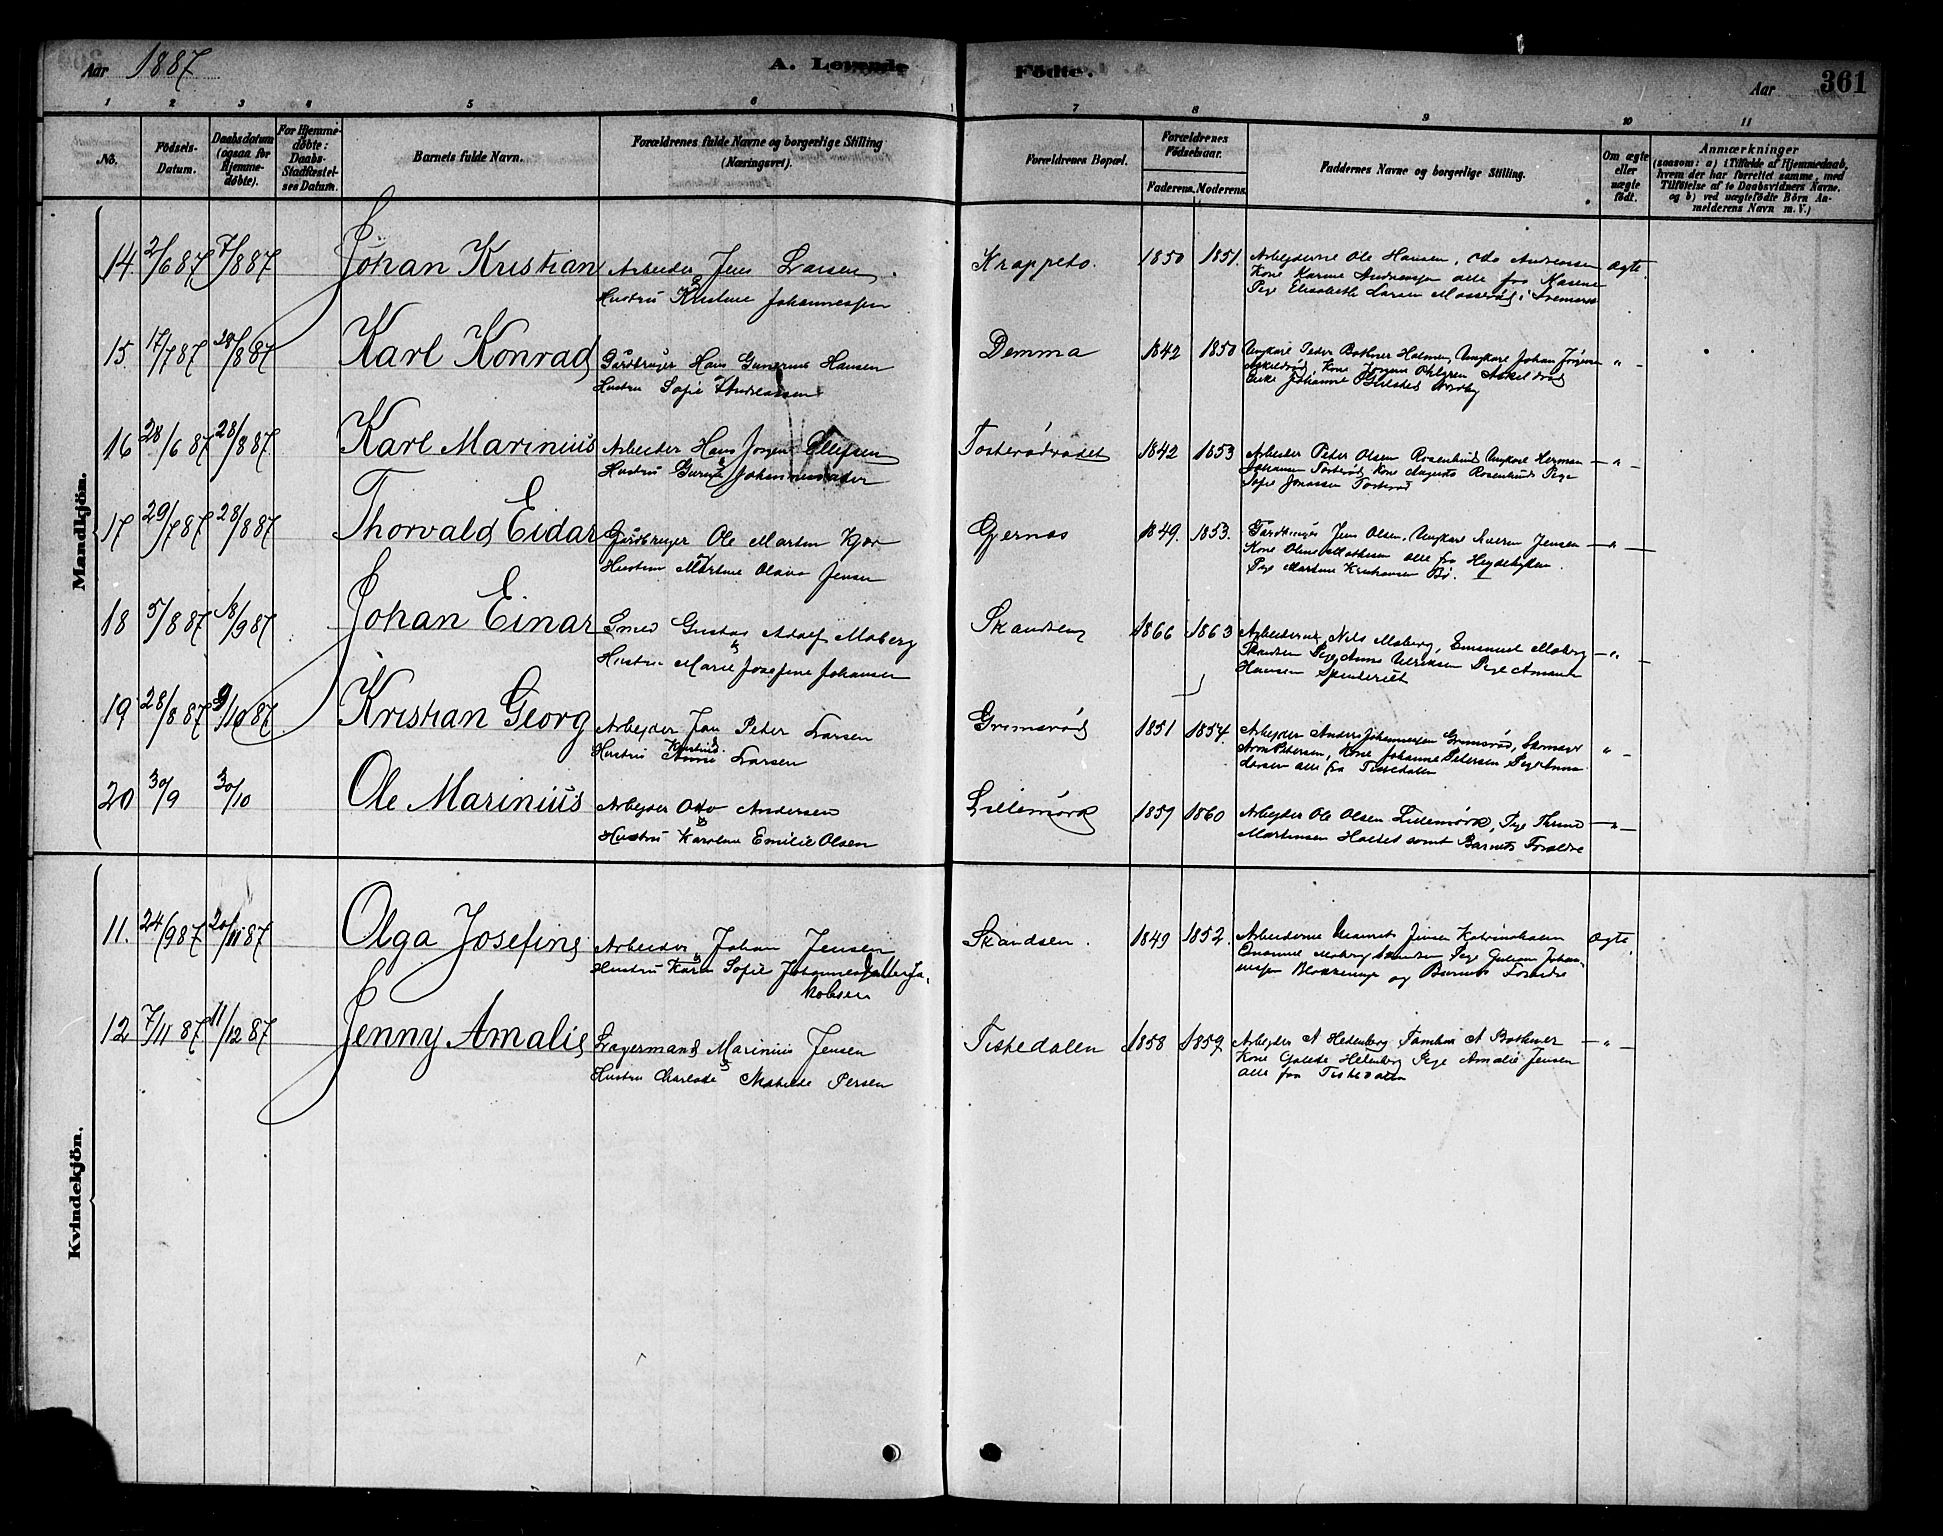 Aar 1887
A. Levende Födte.
Aar
361
1 2 3 4 5 6 7 8 9 10 11
No.
Födsels-Datum.
Daabsdatum (ogsaa for Hjemmedöbte).
For Hjemmedöbte: Daabs-Stadfæstelses Datum.
Barnets fulde Navn.
Forældrenes fulde Navne og borgerlige Stilling (Næringsvei).
Forældrenes Bopæl.
Forældrenes Födselsaar.
Faderens. Moderens.
Faddernes Navne og borgerlige Stilling.
Om ægte eller uægte födt.
Anmærkninger
(saasom: a) i Tilfælde af Hjemmedaab, hvem der har forrettet samme, med Tilföielse af to Daabsvidners Navne, og b) ved uægtefödte Börn Anmelderens Navn m. V.)
Mandkjön.
14. 2/6 87 7/8 87 Johan Kristian Arbeider Jens Larsen Krappeto. 1850 1851. Arbeiderne Ole Hansen, Odo Andreassen Ægte.
Hustru Kristine Johannessen
Kone Karine Andreassen alle fra
Pige Elisabeth Larsen
15. 17/7 87 28/8 87 Karl Konrad Gårdbruger Hans Gunerius Hansen Demma 1842 1850 Ungkarl Peder Bothner Holmen, Ungkarl Johan Jörgen " -
Hustru Sofie Andreassen
Askelsröd, Kone Jörgine Ohlgren Askelsröd
16 28/6 87 28/8 87 Karl Marinius Arbeider Hans Jörgen Ellefsen Tosterödvadet 1842 1853 Arbeider Peter Olsen Rosenlund Ungkarl Herman - " -
Hustru Johannesdatter
Johansen Tosteröd, Kone Augusta Rosenlund Pige
Sofie Jonassen Tosteröd
17 29/7 87 28/8 87 Thorvald Eidar Gårdbruger Ole Martin Gjernæs 1849. 1853. Gårdbruger Jens Olsen, Ungkarl Jensen - " -
Hustru Martine Olava Jensen
Kone Oline Mathesen alle fra
Pige Martine Kristiansen Bö.
18 5/8 87 18/9 87 Johan Einar Smed Gustav Adolf Moberg Skandsen 1866 1863 Arbeiderne Nils Moberg, Emanuel Moberg - " -
Hustru Marie Josefine Johansen
Skandsen Pige Anne Ulriksen Pige Amanda
Hansen
19 28/8 87 9/10 87 Kristian Georg Arbejder Jan Peter Larsen Grimsröd 1851 1854. Arbejder Anders Johannessen Grimsröd, " -
Hustru Anne Larsen
Petersen, Kone Johanne Petersen Pige Anna
Larsen alle fra Tistedalen
20 30/9 30/10 Ole Marinius Arbejder Otto Andersen Lillemörk 1857 1860 Arbejder Ole Olsen Lillemörk, Pige Thrine - " -
Hustru Karoline Emilie Olsen
Martinsen Holtet samt Barnets Forældre
Kvindekjön.
11. 24/9 87 20/11 87 Olga Josefine Arbeider Johan Jensen Skandsen. 1849 1852. Arbeiderne Jensen Katrineholm Ægte.
Hustru Karen Sofie Johannesdatter Ja-
kobsen
Emanuel Moberg Skandsen Pige Julian Johan-
nessen og Barnets Forældre
12 7/11 87 11/12 87 Jenny Amalie Lagermand Marinius Jensen Tistedalen 1858 1859 Arbejder A Hedenberg A Bothner - " -
Hustru Charlotte Mathilde Persen
Kone Hedenberg Pige Amalie Jensen
alle fra Tistedalen